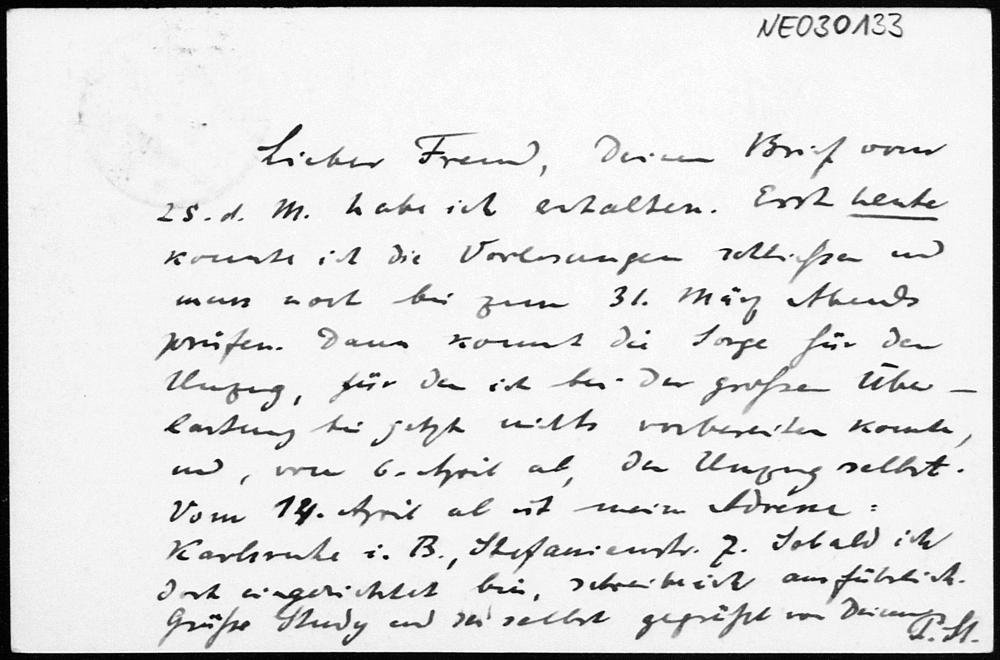 NEO30133
Lieber Freund, Deinen Brief vom
25. d. M. habe ich erhalten. Erst heute
konnte ich die Vorlesungen schließen und
muss noch bis zum 31. März Abends
prüfen. Dann kommt die Sorge für den
Umzug, für den ich bei der großen Über-
lastung bis jetzt nichts vorbereiten konnte,
und, vom 6. April ab, der Umzug selbst.
Vom 14. April ab ist meine Adresse:
Karlsruhe i. B., Stefanienstr. 7. Sobald ich
dort eingerichtet bin, schreibe ich ausführlich.
Grüße Study und sei selbst gegrüßt von Deinem
P. St.